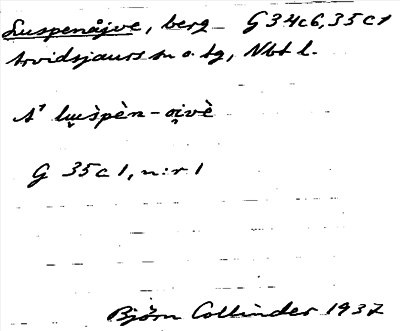 Luspenåjve, berg G 34c6, 35c1
Arvidsjaurs sn o. tg, Nbt l.
A¹ lu̯ṡpèn-oi̯vè
G 35c1, n:r 1
Björn Collinder 1937